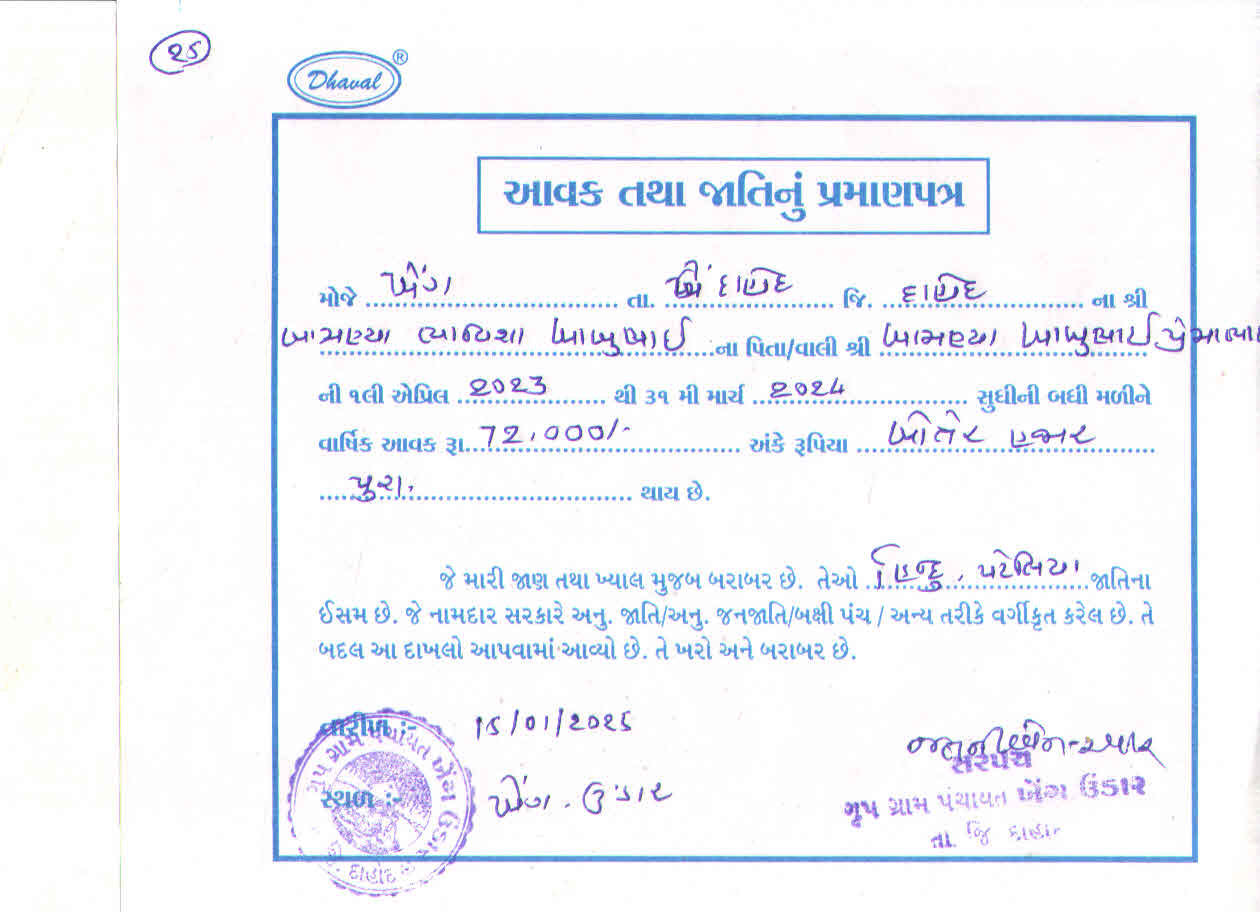 ૨૬
Dhaval ®
આવક તથા જાતિનું પ્રમાણપત્ર
મોજે ખેંગ તા. દાહોદ જિ. દાહોદ ના શ્રી
બામણ્યા બાબુભાઈ ના પિતા/વાલી શ્રી બામણ્યા બાબુભાઈ પ્રેમાભા
ની ૧લી એપ્રિલ 2023 થી ૩૧ મી માર્ચ 2024 સુધીની બધી મળીને
વાર્ષિક આવક રૂા. 72,000/- અંકે રૂપિયા બોતેર હજાર
પુરા. થાય છે.
જે મારી જાણ તથા ખ્યાલ મુજબ બરાબર છે. તેઓ હિન્દુ, પટેલિયા જાતિના
ઈસમ છે. જે નામદાર સરકારે અનુ. જાતિ/અનુ. જનજાતિ/બક્ષી પંચ / અન્ય તરીકે વર્ગીકૃત કરેલ છે. તે
બદલ આ દાખલો આપવામાં આવ્યો છે. તે ખરો અને બરાબર છે.
તારીખ :- /01/2025
સ્થળ :- ખેંગ. ઉંડાર
સરપંચ
ગૃપ ગ્રામ પંચાયત ખેંગ ઉંડાર
તા. જિ દાહોદ
ગૃપ ગ્રામ પંચાયત ખેંગ ઉંડાર
દાહોદ